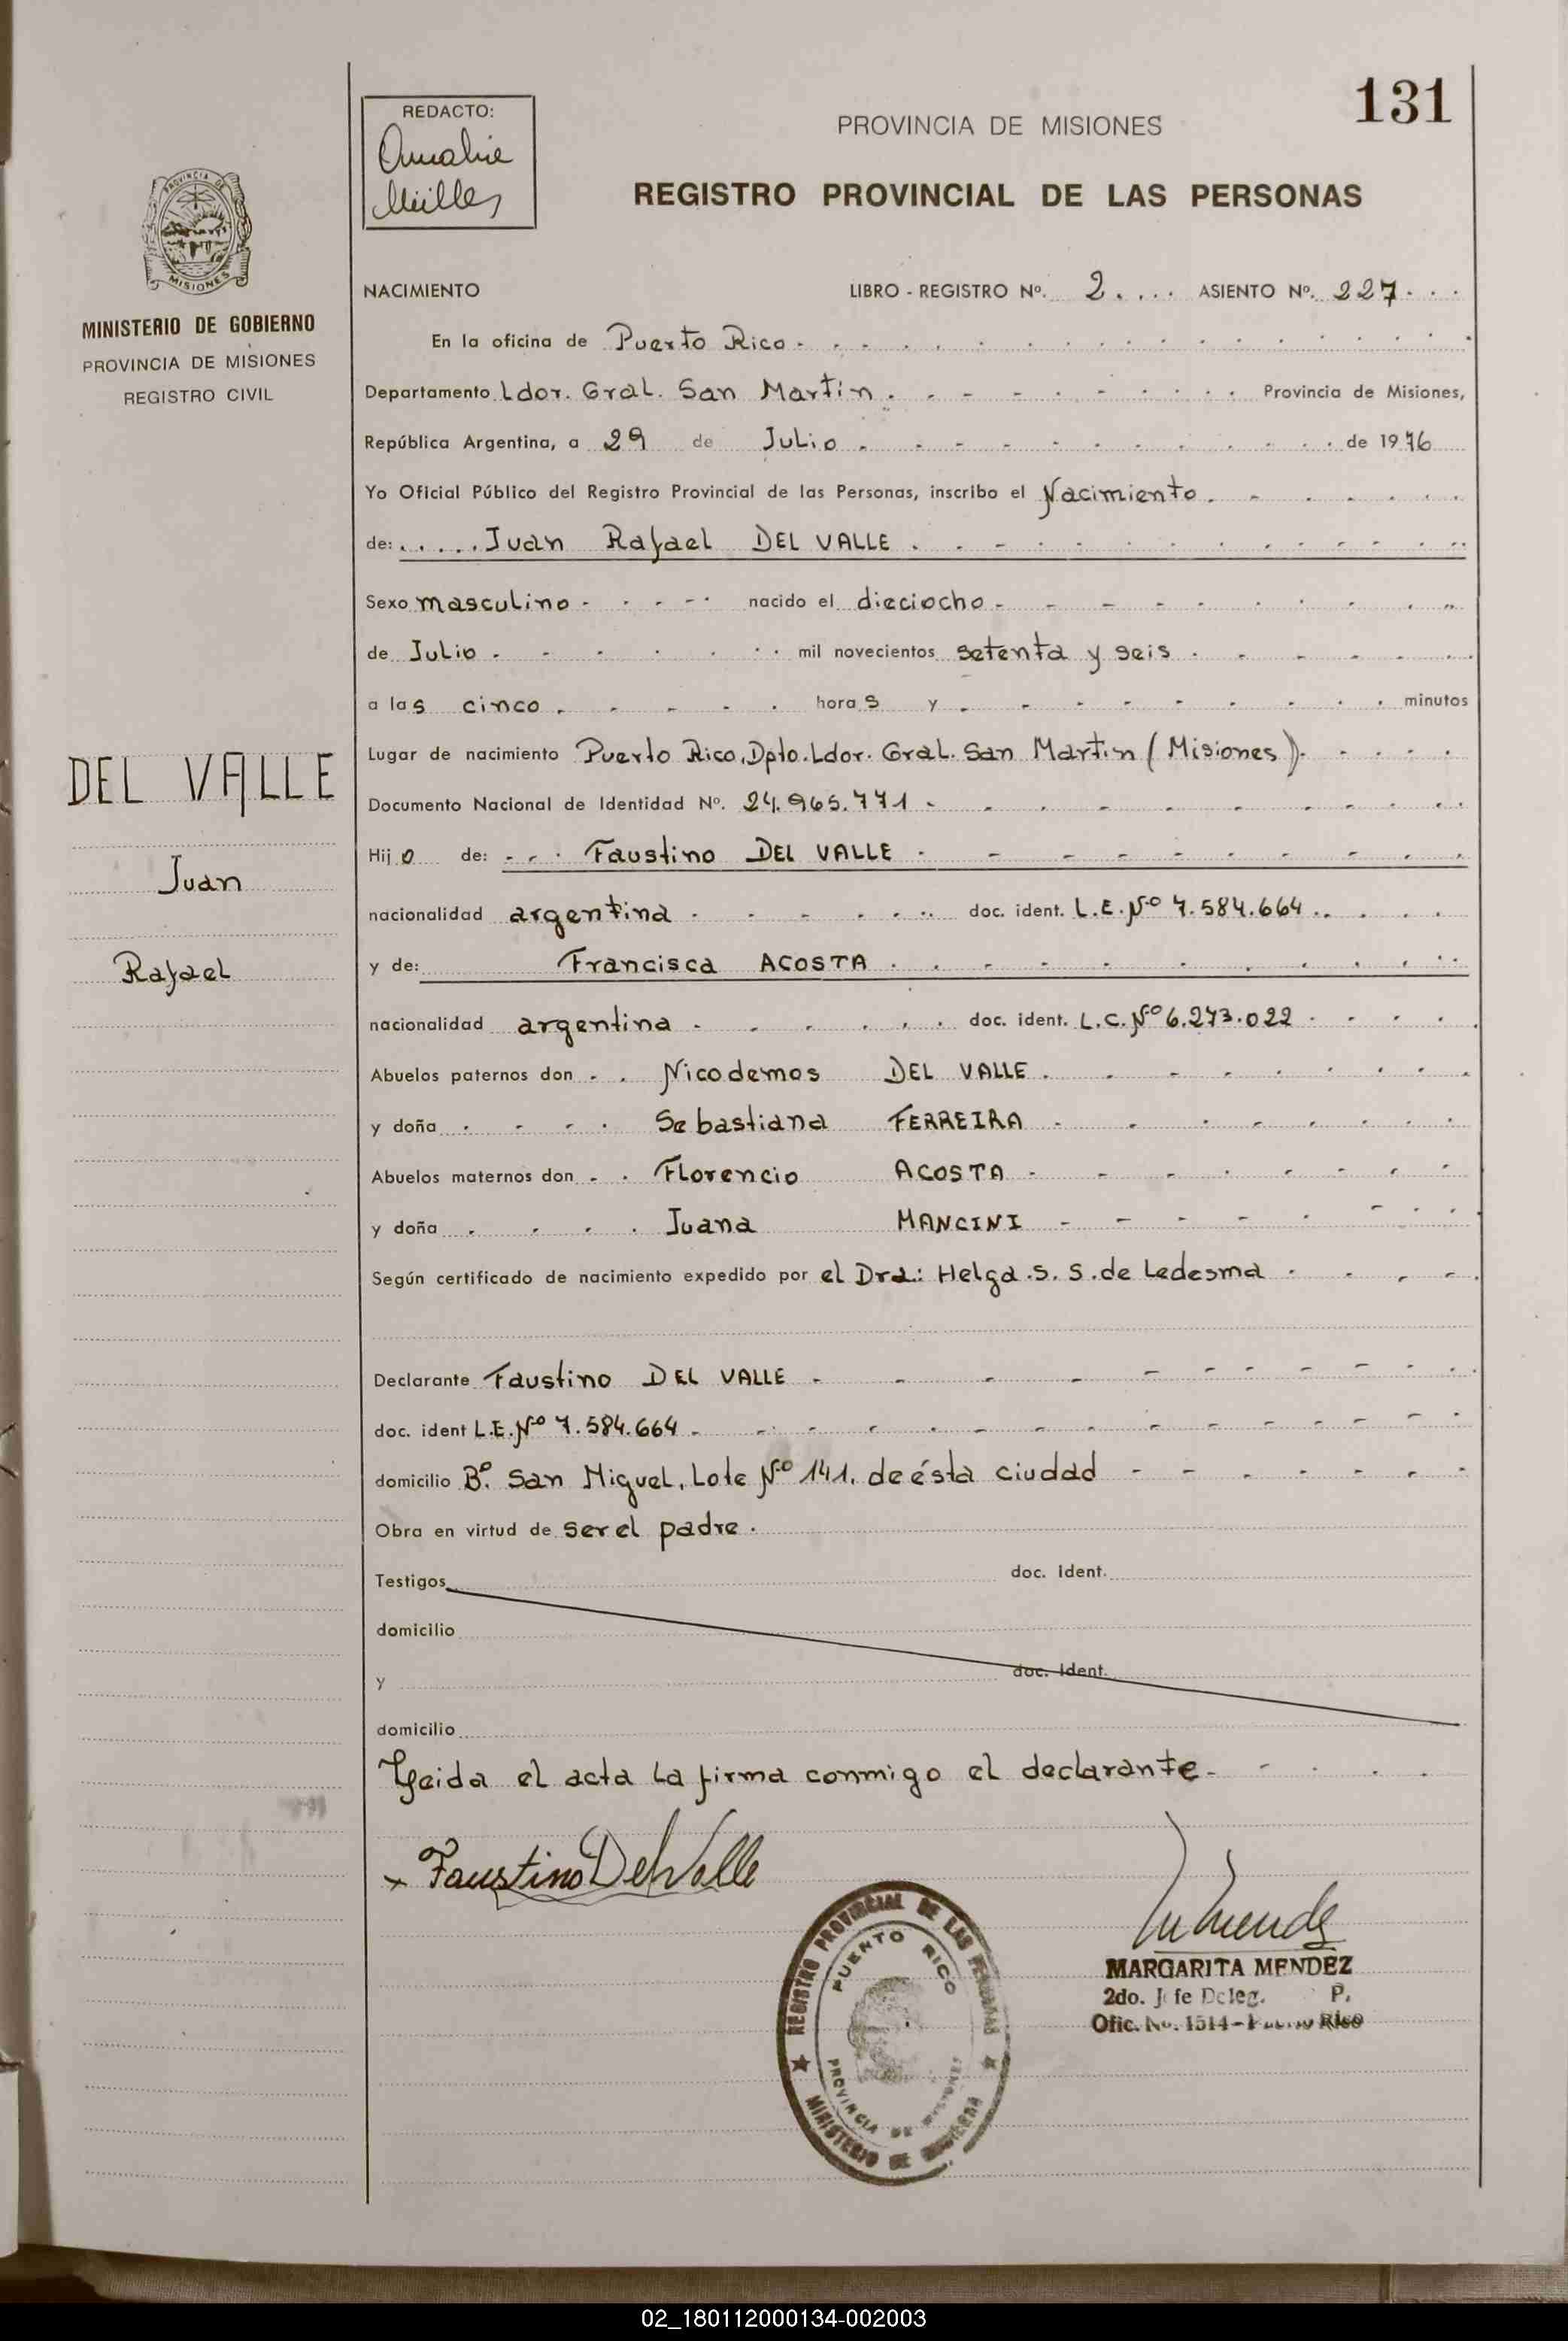 131
REDACTO:
PROVINCIA DE MISIONES
REGISTRO PROVINCIAL DE LAS PERSONAS
PROVINCIA DE
MISIONES
MINISTERIO DE GOBIERNO
PROVINCIA DE MISIONES
REGISTRO CIVIL
DEL VALLE
Juan
Rafael
NACIMIENTO LIBRO - REGISTRO Nº. 2 ASIENTO Nº. 227
En la oficina de Puerto Rico
Departamento Ldor. Gral. San Martin Provincia de Misiones,
República Argentina, a 29 de Julio de 1976
Yo Oficial Público del Registro Provincial de las Personas, inscribo el Nacimiento
de: Juan Rafael DEL VALLE
Sexo masculino nacido el dieciocho
de Julio mil novecientos setenta y seis
a las cinco horas y minutos
Lugar de nacimiento Puerto Rico, Dpto. Ldor. Gral. San Martin (Misiones)
Documento Nacional de Identidad Nº. 24.965.771
Hijo de: Faustino DEL VALLE
nacionalidad argentina doc. ident. L.E. Nº 7.584.664
y de: Francisca ACOSTA
nacionalidad argentina doc. ident. L.C. Nº 6.273.022
Abuelos paternos don Nicodemos DEL VALLE
y doña Sebastiana FERREIRA
Abuelos maternos don Florencio ACOSTA
y doña Juana MANCINI
Según certificado de nacimiento expedido por el Dra: Helga S. S. de Ledesma
Declarante Faustino DEL VALLE
doc. ident L.E. Nº 7.584.664
domicilio Bº. San Miguel, Lote Nº 141. de ésta ciudad
Obra en virtud de ser el padre.
Testigos doc. Ident.
domicilio
y doc. Ident.
domicilio
Leida el acta la firma conmigo el declarante
x Faustino Del Valle
REGISTRO PROVINCIAL DE LAS PERSONAS
PUERTO RICO
PROVINCIA DE MISIONES
MINISTERIO DE GOBIERNO
MARGARITA MENDEZ
2do. Jefe Deleg. P.
Ofic. No. 1514 - Puerto Rico
02_180112000134-002003